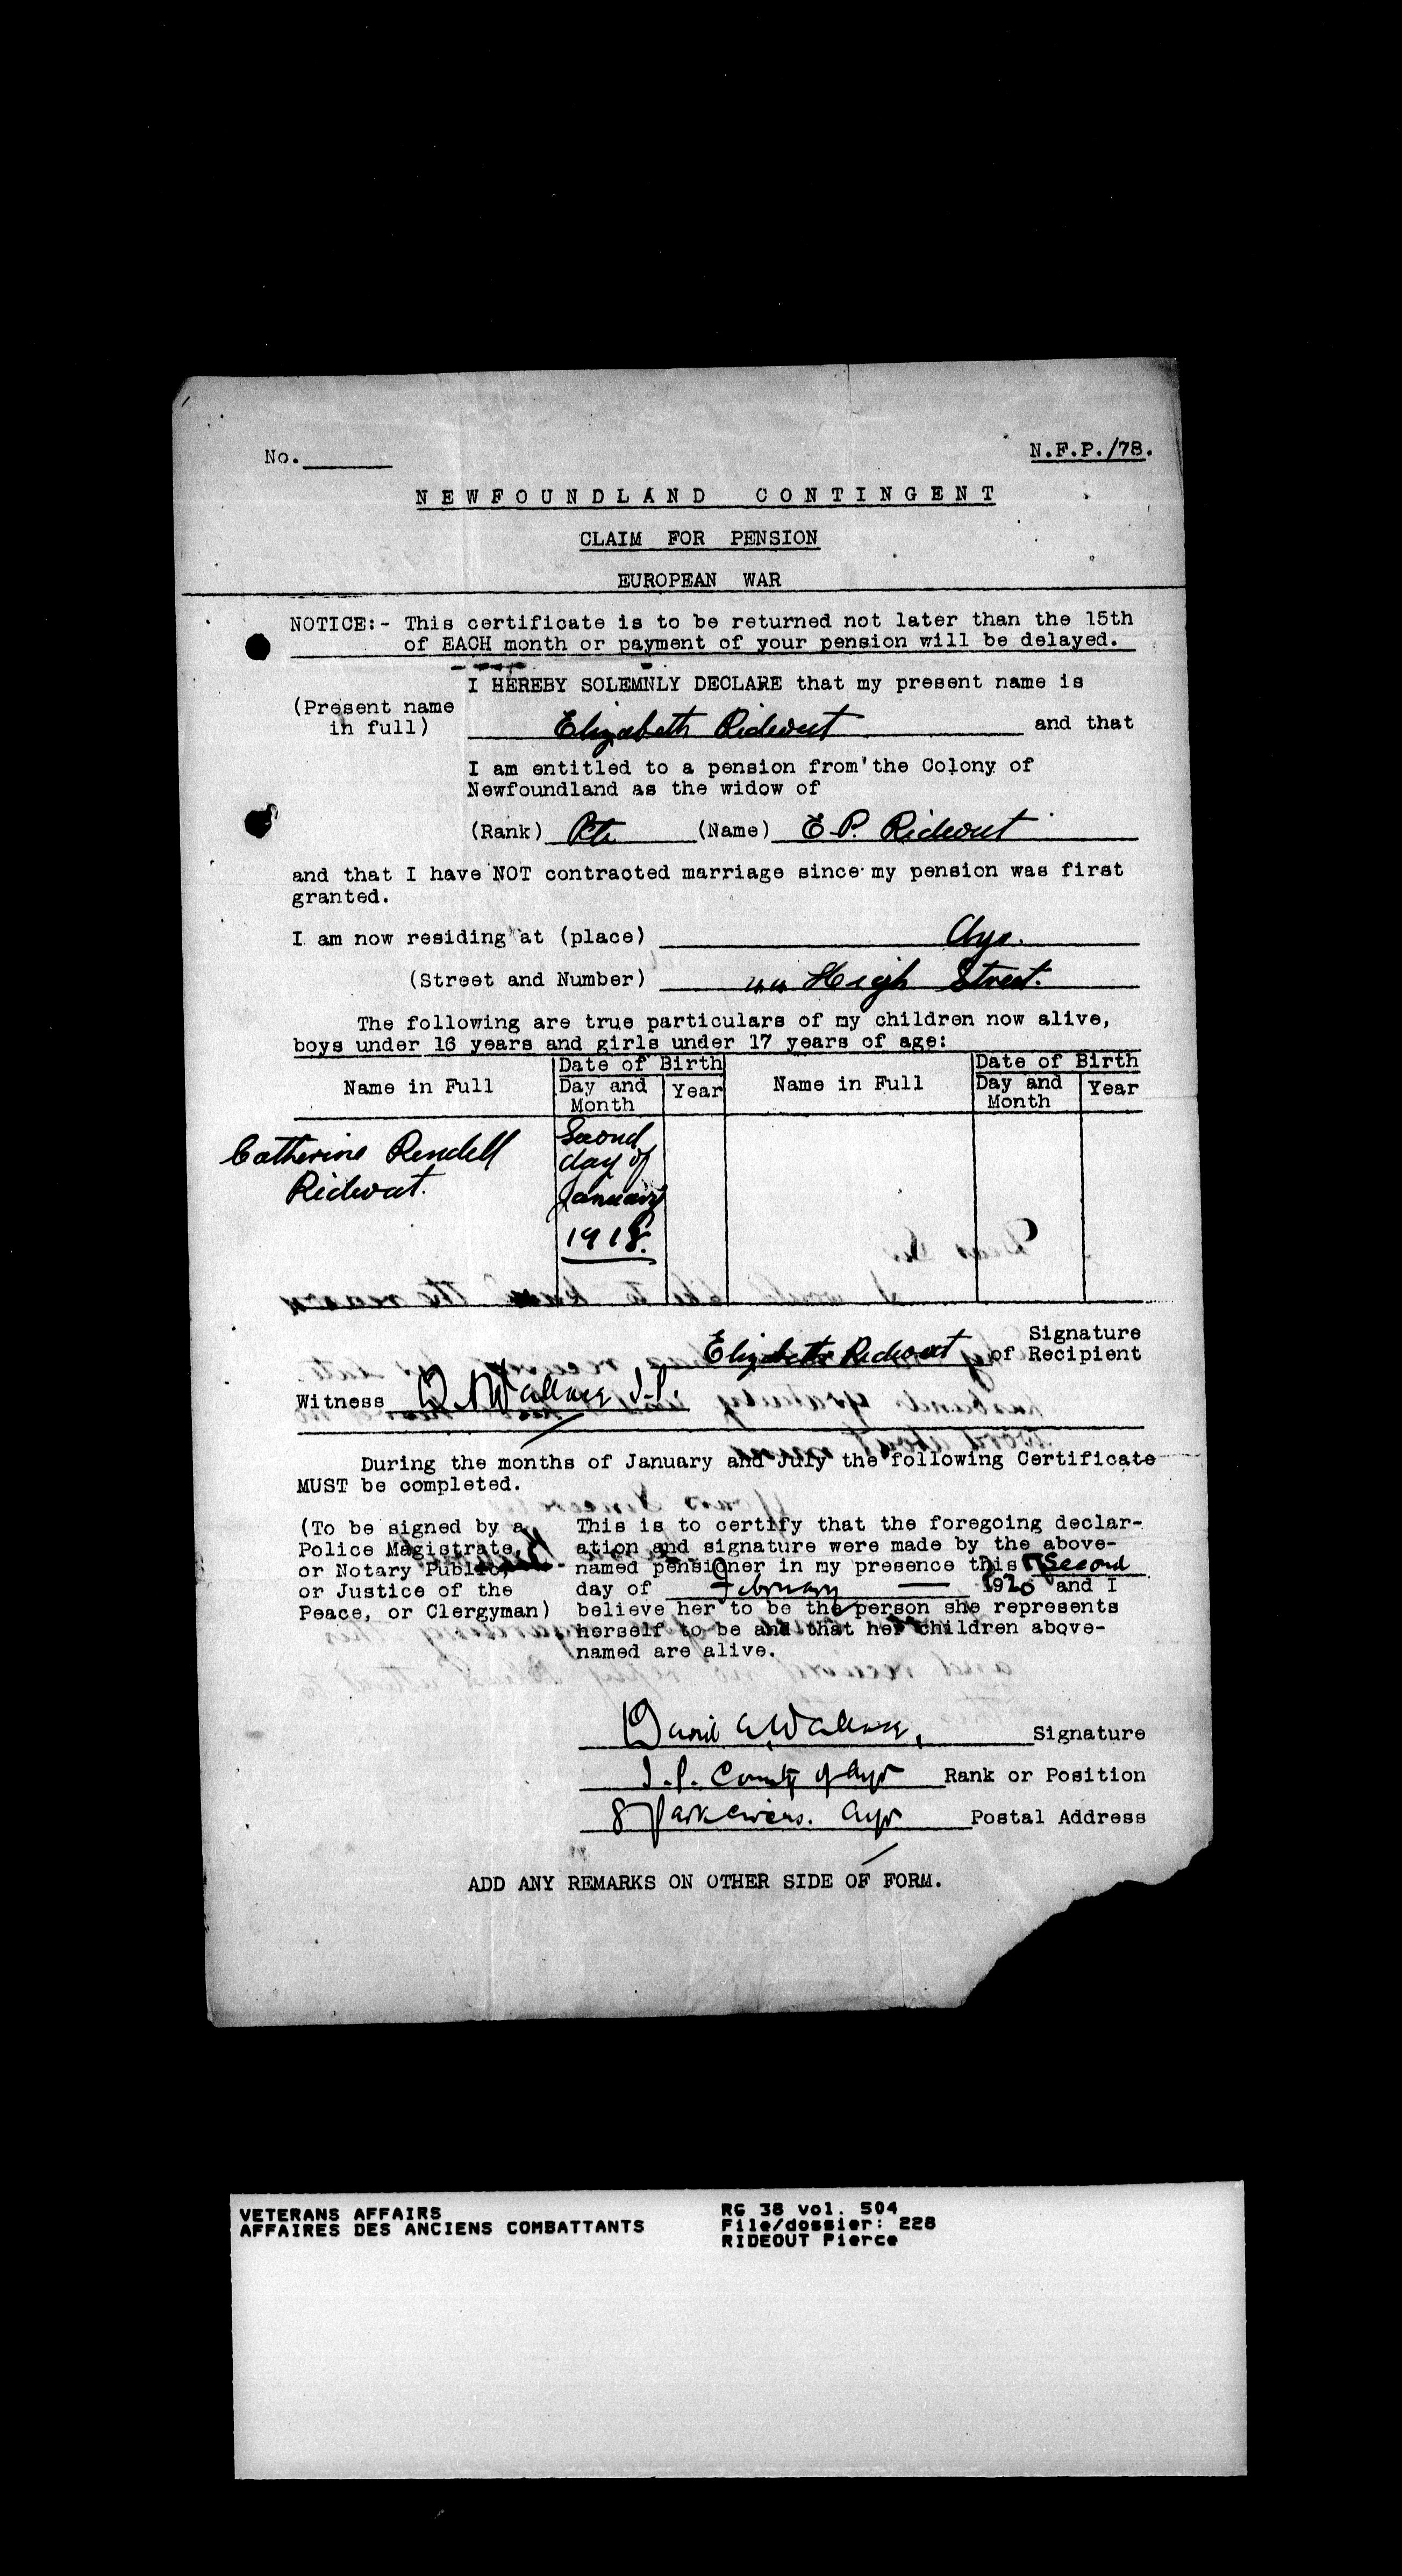 No.______ N.F.P./78.
NEWFOUNDLAND CONTINGENT
CLAIM FOR PENSION
EUROPEAN WAR
NOTICE:- This certificate is to be returned not later than the 15th
of EACH month or payment of your pension will be delayed.
I HEREBY SOLEMNLY DECLARE that my present name is
(Present name
in full) Elizabeth Rideout and that
I am entitled to a pension from the Colony of
Newfoundland as the widow of
(Rank) Pte (Name) E P. Rideout
and that I have NOT contracted marriage since my pension was first
granted.
I am now residing at (place) Ayr.
(Street and Number) 44 High Street.
The following are true particulars of my children now alive,
boys under 16 years and girls under 17 years of age:
Name in Full Date of Birth Name in Full Date of Birth
Day and Month Year Day and Month Year
Catherine Rendell Second
Rideout. day of
January
1918.
Elizabeth Rideout Signature
of Recipient
Witness D. Wallace J.P.
During the months of January and July the following Certificate
MUST be completed.
(To be signed by a This is to certify that the foregoing declar-
Police Magistrate, ation and signature were made by the above-
or Notary Public, named pensioner in my presence this Second
or Justice of the day of February 1920 and I
Peace, or Clergyman) believe her to be the person she represents
herself to be and that her children above-
named are alive.
Wallace, Signature
J.P. County of Ayr Rank or Position
8 Ayr Postal Address
ADD ANY REMARKS ON OTHER SIDE OF FORM.
VETERANS AFFAIRS RG 38 vol. 504
AFFAIRES DES ANCIENS COMBATTANTS File/dossier: 228
RIDEOUT Pierce